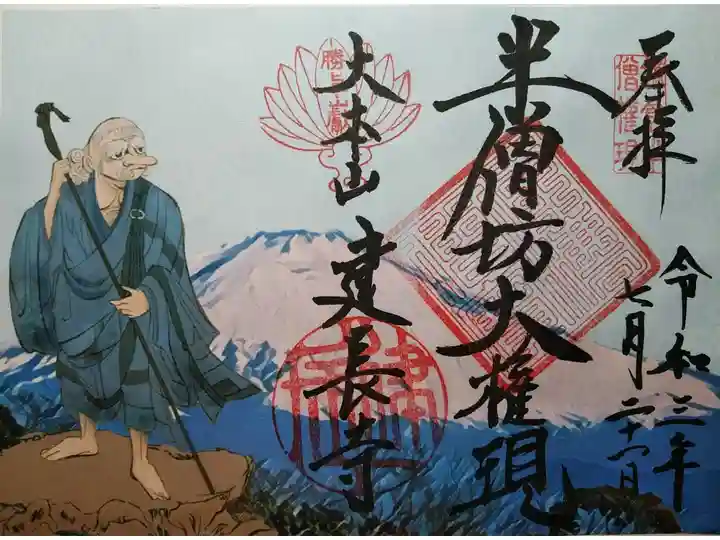 奉拝
令和三年
七月二十一日
半僧坊大権現
大本山
建長寺
勝上嶽